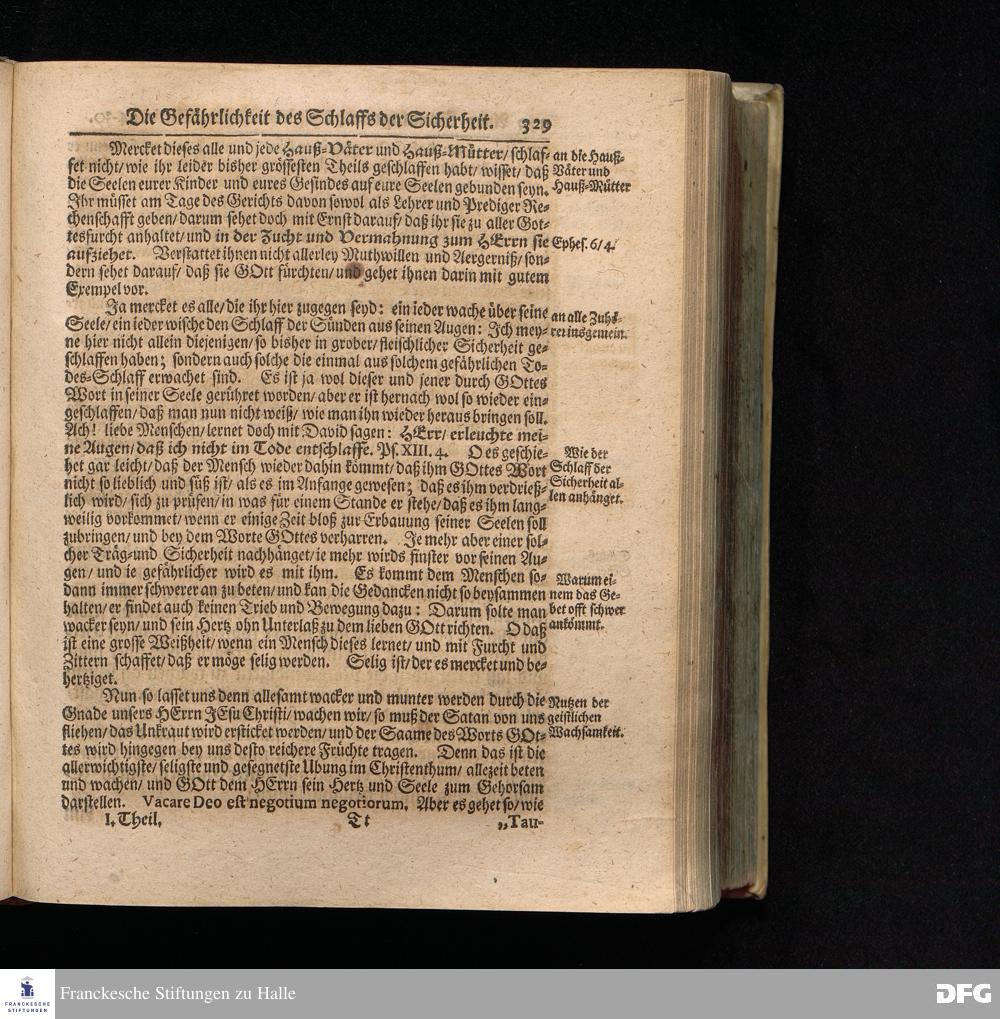 Die Gefährlichkeit des Schlaffs der Sicherheit. 329
Mercket dieses alle und jede Hauß-Väter und Hauß-Mütter/ schlaf-
fet nicht/ wie ihr leider bisher grössesten Theils geschlaffen habt/ wisset/ daß
die Seelen eurer Kinder und eures Gesindes auf eure Seelen gebunden seyn.
Ihr müsset am Tage des Gerichts davon sowol als Lehrer und Prediger Re-
chenschafft geben/ darum sehet doch mit Ernst darauf/ daß ihr sie zu aller Got-
tesfurcht anhaltet/ und in der Zucht und Vermahnung zum HErrn sie
aufziehet. Verstattet ihnen nicht allerley Muthwillen und Aergerniß/ son-
dern sehet darauf/ daß sie GOtt fürchten/ und gehet ihnen darin mit gutem
Exempel vor.
an die Hauß-
Väter und
Hauß-Mütter
Ephes. 6/4.
Ja mercket es alle/ die ihr hier zugegen seyd: ein ieder wache über seine
Seele/ ein ieder wische den Schlaff der Sünden aus seinen Augen: Ich mey-
ne hier nicht allein diejenigen/ so bisher in grober/ fleischlicher Sicherheit ge-
schlaffen haben; sondern auch solche die einmal aus solchem gefährlichen To-
des-Schlaff erwachet sind. Es ist ja wol dieser und jener durch GOttes
Wort in seiner Seele gerühret worden/ aber er ist hernach wol so wieder ein-
geschlaffen/ daß man nun nicht weiß/ wie man ihn wieder heraus bringen soll.
Ach! liebe Menschen/ lernet doch mit David sagen: HErr/ erleuchte mei-
ne Augen/ daß ich nicht im Tode entschlaffe. Ps. XIII. 4. O es geschie-
het gar leicht/ daß der Mensch wieder dahin kömmt/ daß ihm GOttes Wort
nicht so lieblich und süß ist/ als es im Anfange gewesen; daß es ihm verdrieß-
lich wird/ sich zu prüfen/ in was für einem Stande er stehe/ daß es ihm lang-
weilig vorkommet/ wenn er einige Zeit bloß zur Erbauung seiner Seelen soll
zubringen/ und bey dem Worte GOttes verharren. Je mehr aber einer sol-
cher Träg-und Sicherheit nachhänget/ ie mehr wirds finster vor seinen Au-
gen/ und ie gefährlicher wird es mit ihm. Es kommt dem Menschen so-
dann immer schwerer an zu beten/ und kan die Gedancken nicht so beysammen
halten/ er findet auch keinen Trieb und Bewegung dazu: Darum solte man
wacker seyn/ und sein Hertz ohn Unterlaß zu dem lieben GOtt richten. O daß
ist eine grosse Weißheit/ wenn ein Mensch dieses lernet/ und mit Furcht und
Zittern schaffet/ daß er möge selig werden. Selig ist/ der es mercket und be-
hertziget.
an alle Zuhö-
rer insgemein.
Wie der
Schlaff der
Sicherheit al-
len anhänget.
Warum ei-
nem das Ge-
bet offt schwer
ankömmt.
Nun so lasset uns denn allesamt wacker und munter werden durch die
Gnade unsers HErrn JEsu Christi/ wachen wir/ so muß der Satan von uns
fliehen/ das Unkraut wird ersticket werden/ und der Saame des Worts GOt-
tes wird hingegen bey uns desto reichere Früchte tragen. Denn das ist die
allerwichtigste/ seligste und gesegnetste Ubung im Christenthum/ allezeit beten
und wachen/ und GOtt dem HErrn sein Hertz und Seele zum Gehorsam
darstellen. Vacare Deo est negotium negotiorum. Aber es gehet so/ wie
Nutzen der
geistlichen
Wachsamkeit.
I. Theil. Tt „Tau-
FRANCKESCHE
STIFTUNGEN
Franckesche Stiftungen zu Halle
DFG